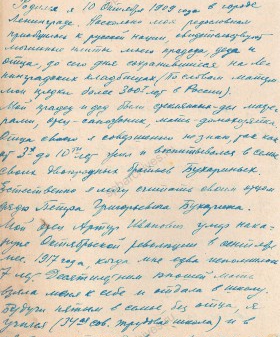 Родился я 10 Октября 1909 года в городе
Ленинграде. Насколько моя родословная
приобщилась к русской нации, свидетельствуют
могильные плиты моего прадеда, деда и
отца, до сего дня сохранившиеся на ле-
нинградских кладбищах (По словам матери
мои предки более 300 лет в России).
Мой прадед и дед были
отец-сапожник, мать-домохозяйка.
Отца своего я совершенно не знал, так как
от 3х до 10ти лет жил и воспитывался в семье
своих двоюродных братьев Букариных.
Естественно я могу считать своим отцом
дядю Петра Григорьевича Букарина.
Мой отец Артур Иванович умер нака-
нуне Октябрьской революции в сентяб-
ре 1917 года, когда мне едва исполнилось
7 лет. Десятилетним мать
взяла меня к себе и отдала в школу.
Будучи пятым в семье, без отца, я
учился (сов. трудовая школа) и в